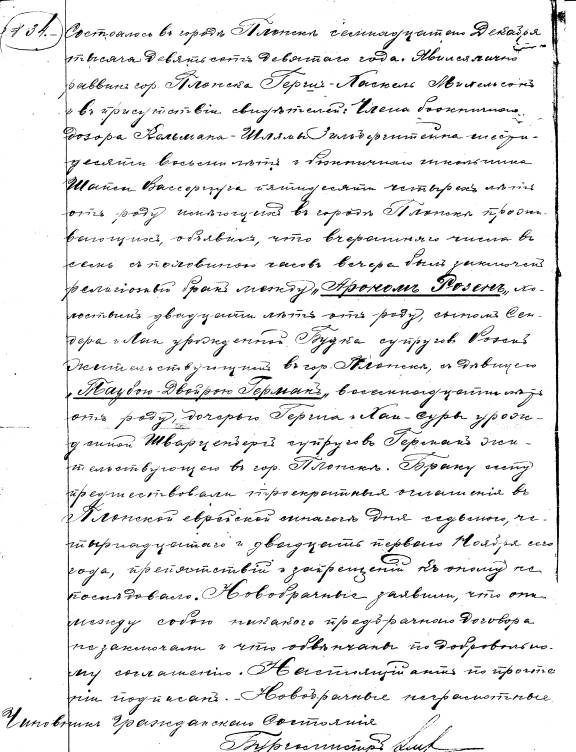 № 31.
Состоялось въ городѣ Плонскѣ семнадцатаго Декабря
тысяча девятьсотъ девятаго года. Явился лично
раввинъ гор. Плонска Герш-Хаскель Михельсонъ
и въ присутствіи свидѣтелей: Члена божничнаго
дозора Кельмана-Шлямы Зильберштейна шести-
десяти восьми лѣтъ и божничнаго школьника
Шапси Вассерцуга пятидесяти четырехъ лѣтъ
отъ роду имѣющихъ въ городѣ Плонскѣ прожи-
вающихъ, объявилъ, что вчерашняго числа въ
семь съ половиною часовъ вечера былъ заключенъ
религіозный бракъ между „Арономъ Розенъ", хо-
лостымъ двадцати лѣтъ отъ роду, сыномъ Сен-
дера и Лаи урожденной Будка супруговъ Розенъ
жительствующимъ въ гор. Плонскѣ, съ дѣвицею
„Таубою-Двойрою Германъ" восемнадцати лѣтъ
отъ роду, дочерью Герша и Хаи-Суры урож-
денной Шварценбергъ супруговъ Германъ жи-
тельствующею въ гор. Плонскѣ. Браку сему
предшествовали троекратныя оглашенія въ
Плонской еврейской синагогѣ дня седьмого, че-
тырнадцатаго и двадцать перваго Ноября сего
года, препятствій и запрещеній къ оному не
послѣдовало. Новобрачные заявили, что они
между собою никакого предбрачнаго договора
не заключали и что обвѣнчаны по добровольно-
му соглашенію. Настоящій актъ по прочте-
ніи подписанъ. - Новобрачные неграмотные
Чиновникъ Гражданскаго Состоянія
Бургомистръ